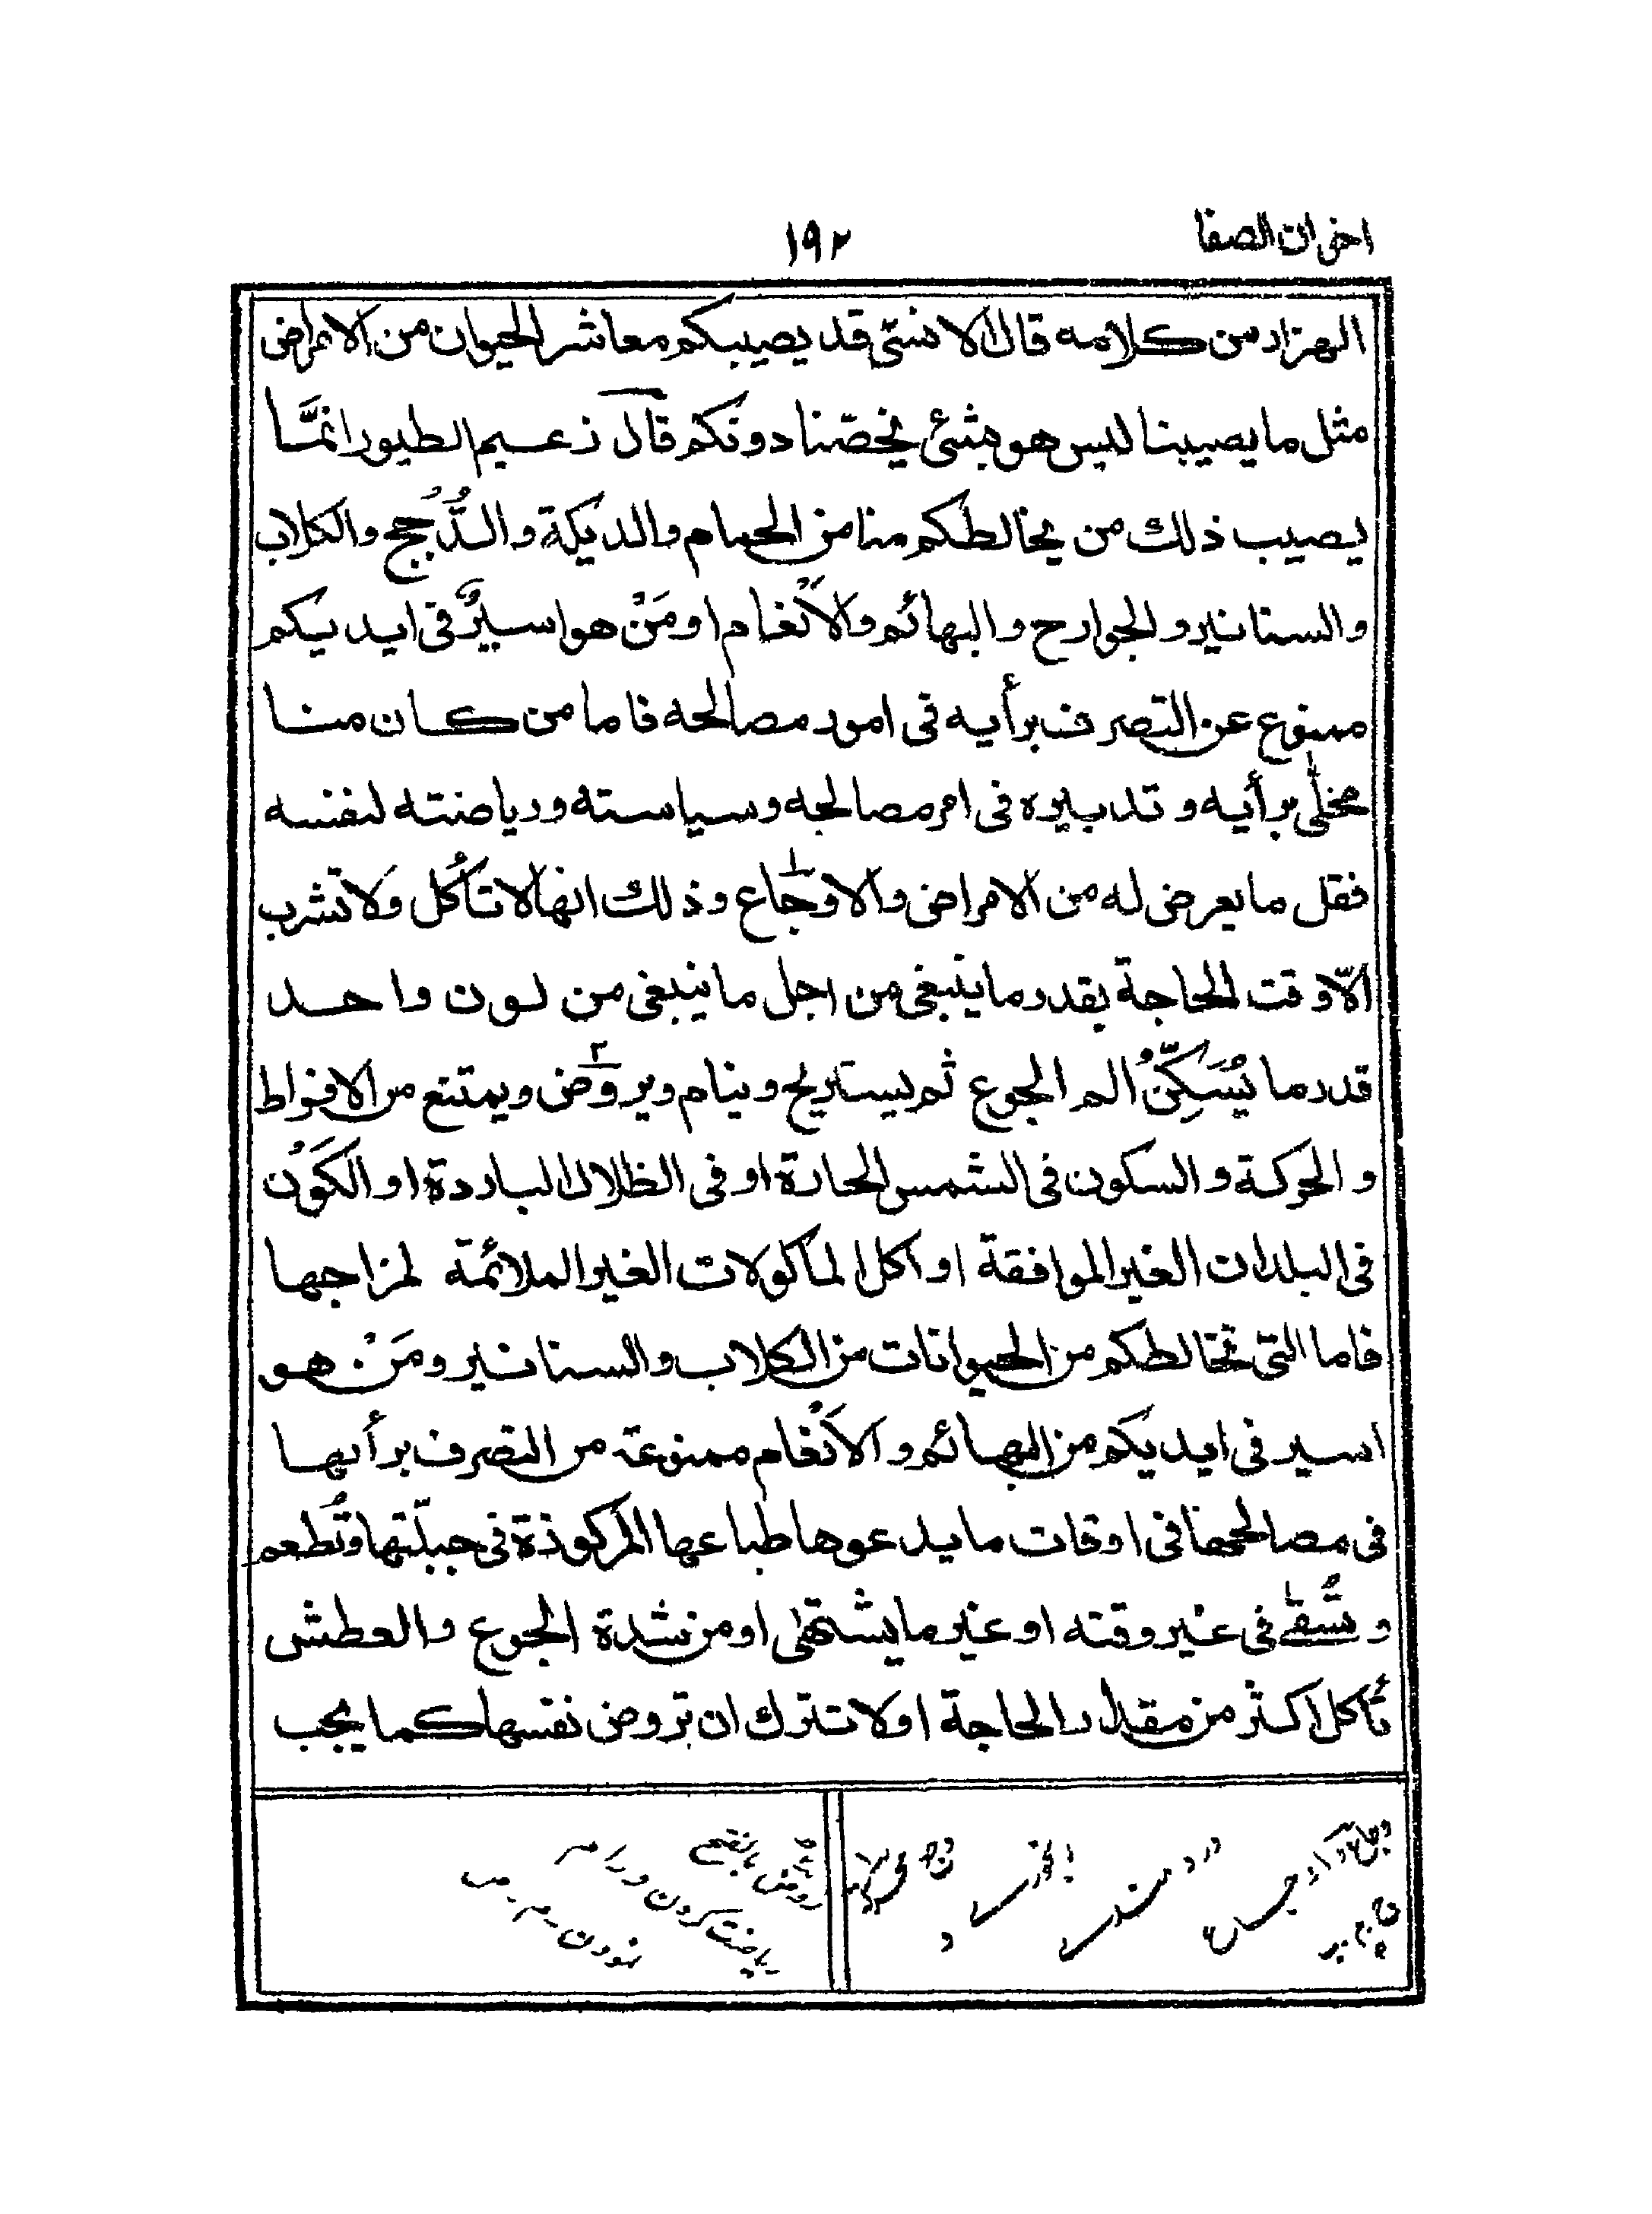 اخوان الصفا
١٩٢
الهزاد من كلامه قال الانسّى قد يصيبكم معاشر الحيوان من الامراض
مثل ما يصيبنا ليس هو بشئ يخصّنا دونكم قال زعيم الطيور انمَّا
يصيب ذلك من يخالطكم منا من الحمام والديكة والدُّجُج والكلاب
والسنانير والجوارح والبهائم والاَنْغام او مَنْ هو اسيرٌ فى ايديكم
ممنوع عن التصرف برأيه فى امور مصالحه فاما من كان منا
مخلّٰى برأيه وتدبيره فى امر مصالحه وسياسته ورياضته لنفسه
فقل ما يعرض له من الامراض والاوجاع وذلك انها لا تأكُل ولا تشرب
الّا وقت الحاجة بقدر ما ينبغى من اجل ما ينبغى من لون واحد
قدر ما يُسَكِّنُ الم الجوع ثم يستريح وينام ويروض ويمتنع من الافراط
والحركة والسكون فى الشمس الحارة او فى الظلال الباردة او الكَوْن
فى البلدان الغير الموافقة او اكل الماكولات الغير الملائمة لمزاجها
فاما التى تخالطكم من الحيوانات من الكلاب والسنانير ومَنْ هو
اسير فى ايديكم من البهائم والاَنْغام ممنوعة من التصرف برأيها
فى مصالحها فى اوقات ما يدعوها طباعها المركوزة فى جبلّتها وتُطعم
وتُسقٰى فى غير وقته او غير ما يشتهٰى او من شدة الجوع والعطش
تأكل اكثر من مقدار الحاجة او لا تترك ان تروض نفسها كما يجب
دردمند
رياضت كردن ورام
نمودن